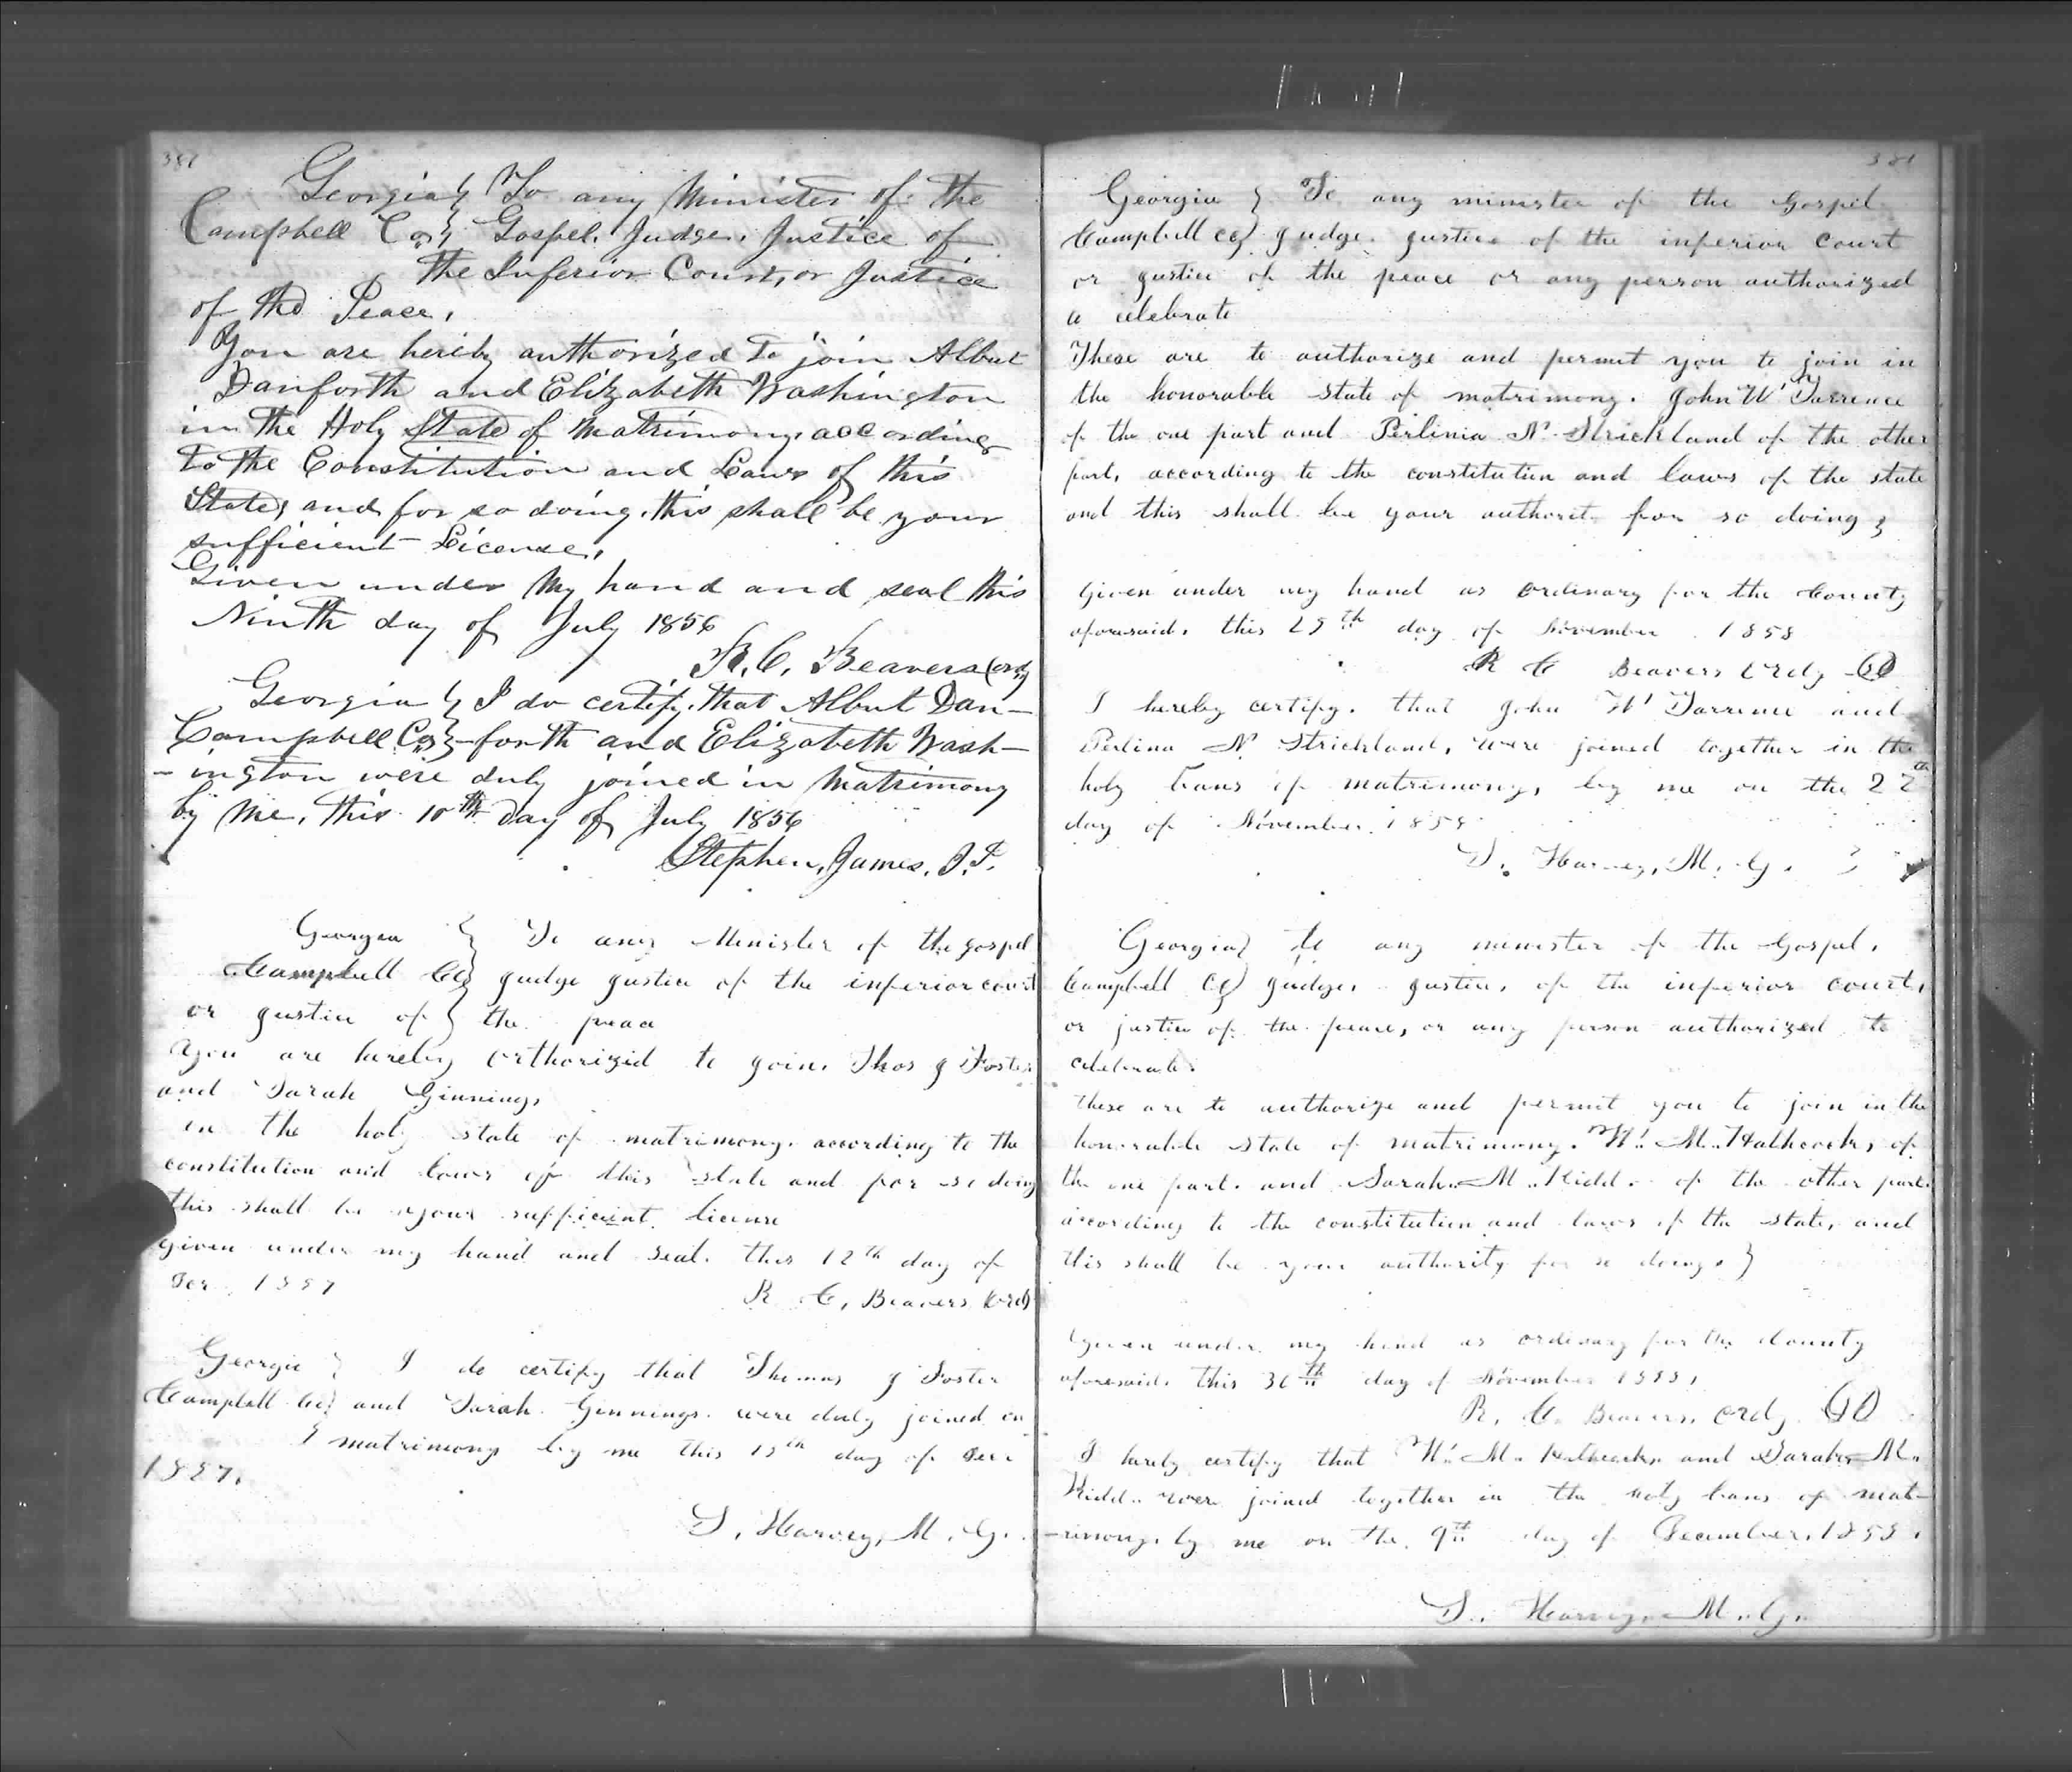 Georgia } To any Minister of the
Campbell Co } Gospel, Judge, Justice of
the Inferior Court, or Justice
of the Peace,
You are hereby authorized to join Albut
Danforth and Elizabeth Washington
in the Holy State of Matrimony according
to the Constitution and Laws of this
State, and for so doing, this shall be your
sufficient License,
Given under my hand and seal this
Ninth day of July 1856
R. C. Beavers (ordy
Georgia } I do certify, that Albut Dan-
Campbell Co } -forth and Elizabeth Wash-
-ington were duly joined in Matrimony
by me, this 10th day of July 1856
Stephen, James, J. P.
Georgia } To any Minister of the gospel
Campbell Co } gudge gustice of the inferior court
or gustice of } the peace
you are hereby orthorizid to goin. Thos g Foster
and Sarah Ginnings
in the holy state of matrimony. according to the
constitution and laws of this state and for so doing
this shall be your sufficient license
given under my hand and seal. this 12th day of
1857
R. C. Beavers Ord
Georgia } I do certify that Thomas g Foster
Campbell Co } and Sarah Ginnings. were duly joined in
} matrimony by me this day of
1857.
S. Harvey, M. G.
Georgia } To any minister of the Gospel
Campbell Co } gudge. gustice of the inferior court
or gustice of the peace or any person authorized
a celebrate
These are to authorize and permit you to join in
the honorable state of matrimony. John W Torrence
of the one part and Perlinia N. Strickland of the other
part, according to the constitution and laws of the state
and this shall be your authority for so doing }
Given under my hand as ordinary for the County
aforesaid. this day of November 1858
R C Beavers Ordy
I hereby certify. that John W Torrence and
Perlina N Strickland, were joined together in the
holy bans of matrimony, by me on the
day of November. 1858
S. Harvey, M. G.
Georgia } To any minister of the Gospel,
Campbell Co } gudge, gustice, of the inferior court,
or justice of the peace, or any person authorized to
celebrate.
these are to authorize and permit you to join in the
honorable state of matrimony. W. M. Hathcock, of
the one part. and Sarah M. Kidd. of the other part.
according to the constitution and laws of the state, and
this shall be your authority for so doing. }
Given under my hand as ordinary for the County
aforesaid. this 30th day of November 1858,
R. C. Beavers. Ordy
I hereby certify that W. M. Hathcock, and Sarah M.
Kidd. were joined together in the holy bans of mat-
-rimony. by me on the 9th day of December, 1858.
S. Harvey. M. G.